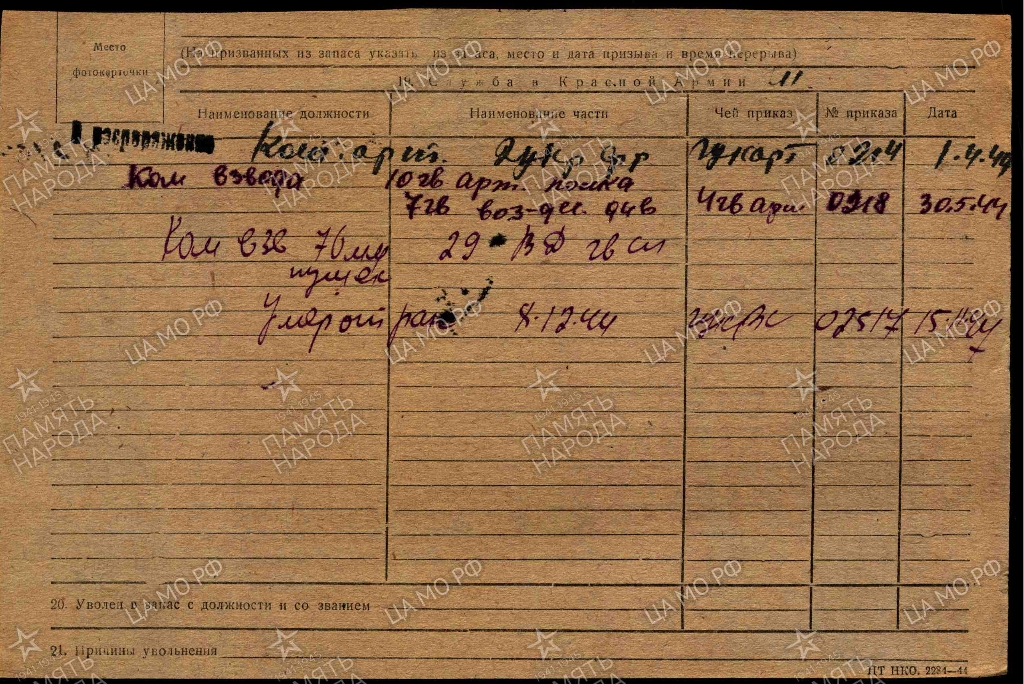 Место
фотокарточки
(На призванных из запаса указать из запаса, место и дата призыва и время перерыва)
19. Служба в Красной Армии
Наименование должности Наименование части Чей приказ № приказа Дата
В распоряжение Ком. арт. 2 Укр фр 0214 1.4.44
Ком взвода 10 гв арт полка 4 гв арм. 0918 30.5.44
7 гв воз-дес. див
Ком взв 76 мм 29 ВД гв сп
пушек
Умер от ран 8.12.44 02517
20. Уволен в запас с должности и со званием
21. Причины увольнения
ПТ НКО. 2284—44
ЦА МО.РФ
1941-1945
ПАМЯТЬ
НАРОДА